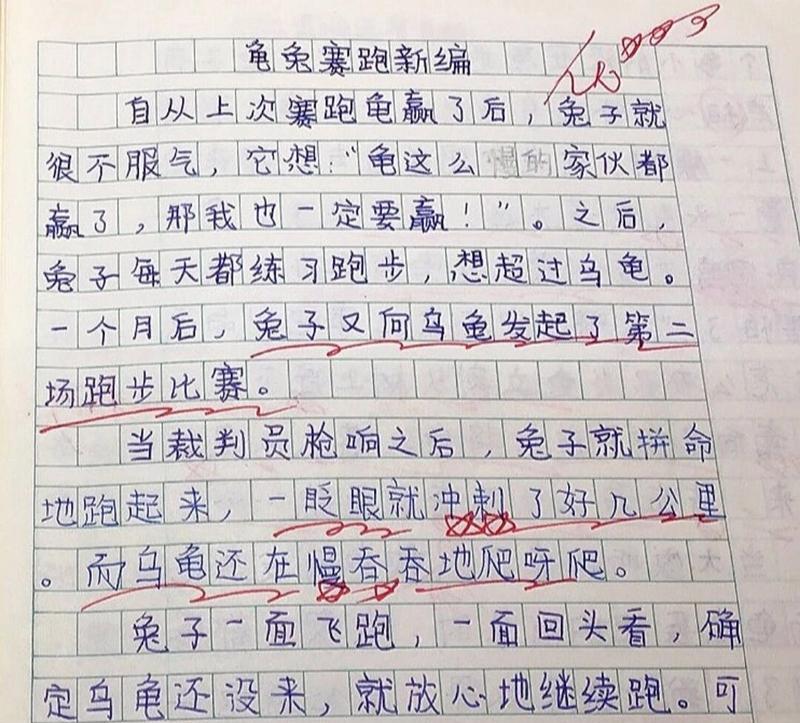 龟兔赛跑新编
自从上次赛跑龟赢了后，兔子就
很不服气，它想：“龟这么慢的家伙都
赢了，那我也一定要赢！”。之后，
兔子每天都练习跑步，想超过乌龟。
一个月后，兔子又向乌龟发起了第二
场跑步比赛。
当裁判员枪响之后，兔子就拼命
地跑起来，一眨眼就冲刺了好几公里
。而乌龟还在慢吞吞地爬呀爬。
兔子一面飞跑，一面回头看，确
定乌龟还没来，就放心地继续跑。可